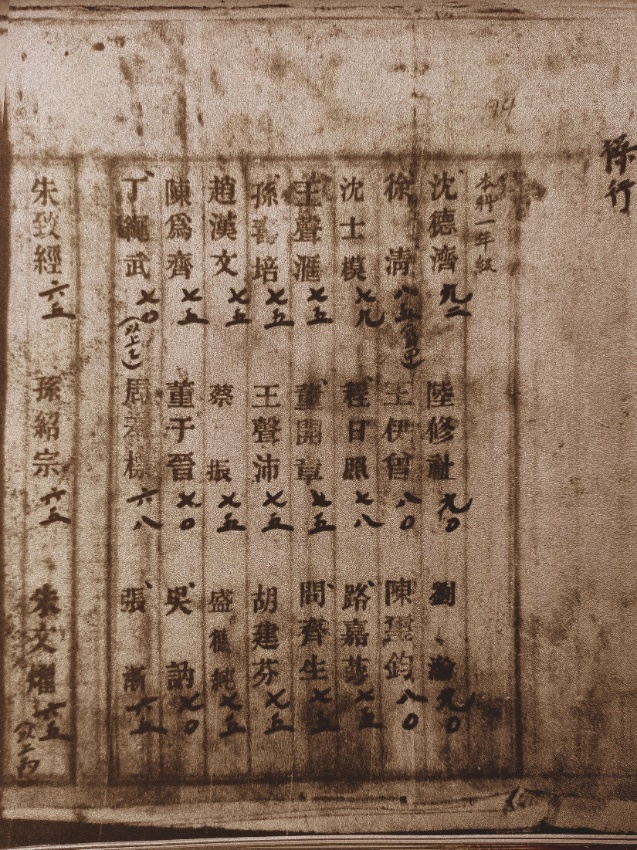 操行
94
本科一年級
沈德濟 九二
陸修祉 九〇
劉瀚 九〇
徐清 八五
王伊曾 八〇
陳璽鈞 八〇
(以上甲)
沈士模 七九
程日照 七八
路嘉 七五
王聲滙 七五
董開章 七五
問齊生 七五
孫培 七五
王聲沛 七五
胡建芬 七五
趙漢文 七五
蔡振 七五
盛純 七五
陳爲齊 七五
董于晉 七〇
吳訥 七〇
丁繩武 七〇
(以上乙)
周 六八
張漸 六五
朱致經 六五
孫紹宗 六五
朱文熠 六五
(以上丙